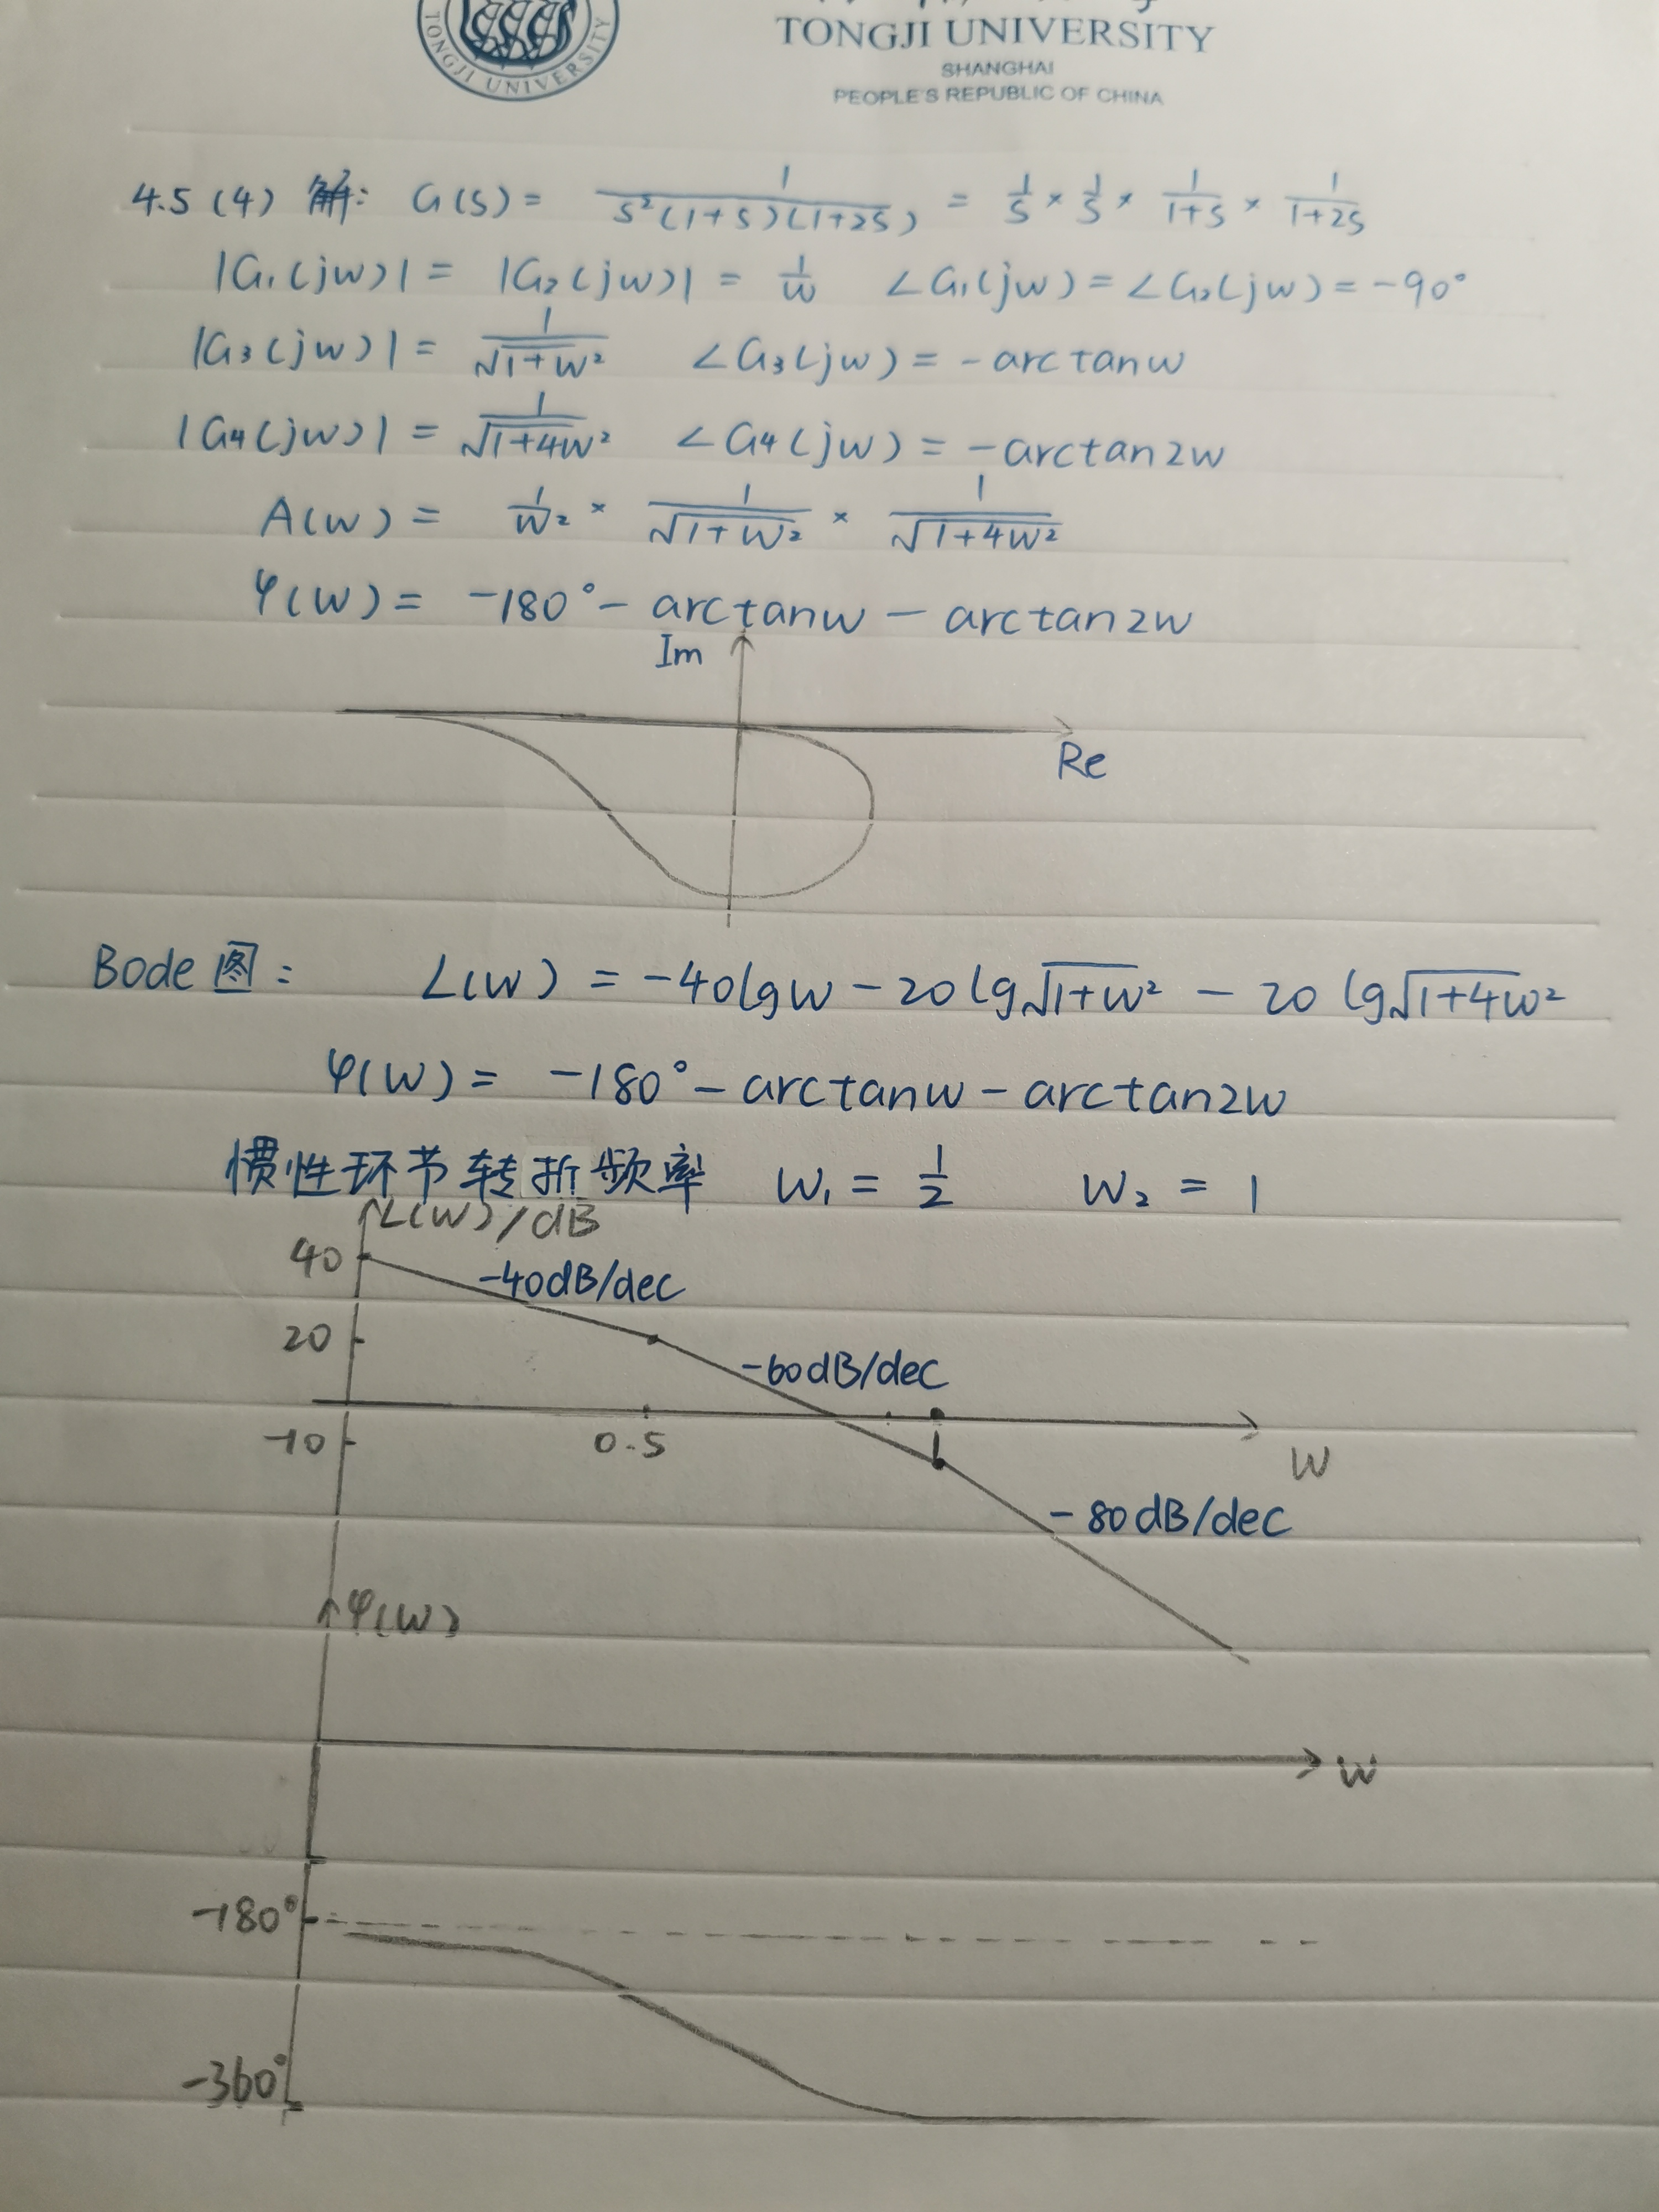 TONGJI UNIVERSITY
TONGJI UNIVERSITY
SHANGHAI
PEOPLE'S REPUBLIC OF CHINA
4.5 (4) 解: G(s) = 1/(s²(1+s)(1+2s)) = 1/s × 1/s × 1/(1+s) × 1/(1+2s)
|G₁(jw)| = |G₂(jw)| = 1/w ∠G₁(jw) = ∠G₂(jw) = -90°
|G₃(jw)| = 1/√(1+w²) ∠G₃(jw) = -arctanw
|G₄(jw)| = 1/√(1+4w²) ∠G₄(jw) = -arctan2w
A(w) = 1/w² × 1/√(1+w²) × 1/√(1+4w²)
φ(w) = -180° - arctanw - arctan2w
Im
Re
Bode图: L(w) = -40lgw - 20lg√(1+w²) - 20lg√(1+4w²)
φ(w) = -180° - arctanw - arctan2w
惯性环节转折频率 w₁ = 1/2 w₂ = 1
L(w)/dB
40
-40dB/dec
20
-60dB/dec
-10 0.5 1 w
-80dB/dec
φ(w)
w
-180°
-360°